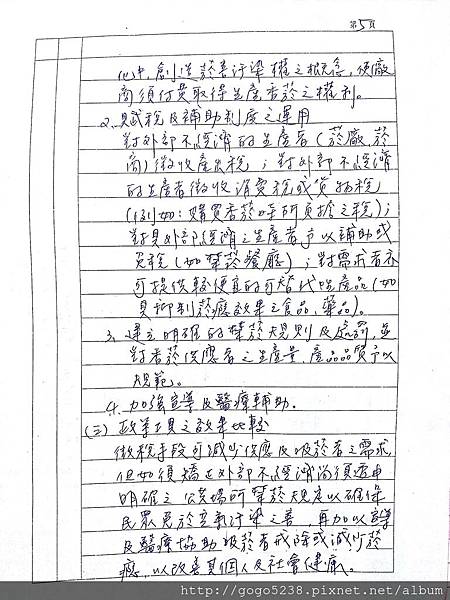 第5頁
化中,創造菸害汙染權之概念,使廠
商須付費取得生產香菸之權利。
2.賦稅及補助制度之運用
對外部不經濟的生產者(菸廠菸
商)徵收產出稅;對外部不經濟
的生產者徵收消費稅或貨物稅
(例如:購買香菸時所負擔之稅);
對具外部經濟之生產者予以補助或
免稅(如禁菸餐廳);對需求者亦
可提供較便宜的可替代性產品(如
具抑制菸癮效果之食品、藥品)。
3.建立明確的禁菸規則及處罰,並
對香菸供應者之生產量、產品品質予以
規範。
4.加強宣導及醫療輔助。
(三)政策工具之效果比較
徵稅手段可減少供應及吸菸者之需求,
但如須矯正外部不經濟尚須透由
明確之公共場所禁菸規定以確保
民眾免於空氣汙染之害,再加以宣導
及醫療協助吸菸者戒除或減少菸
癮,以改善其個人及社會健康。
http://gogo5238.pixnet.net/album